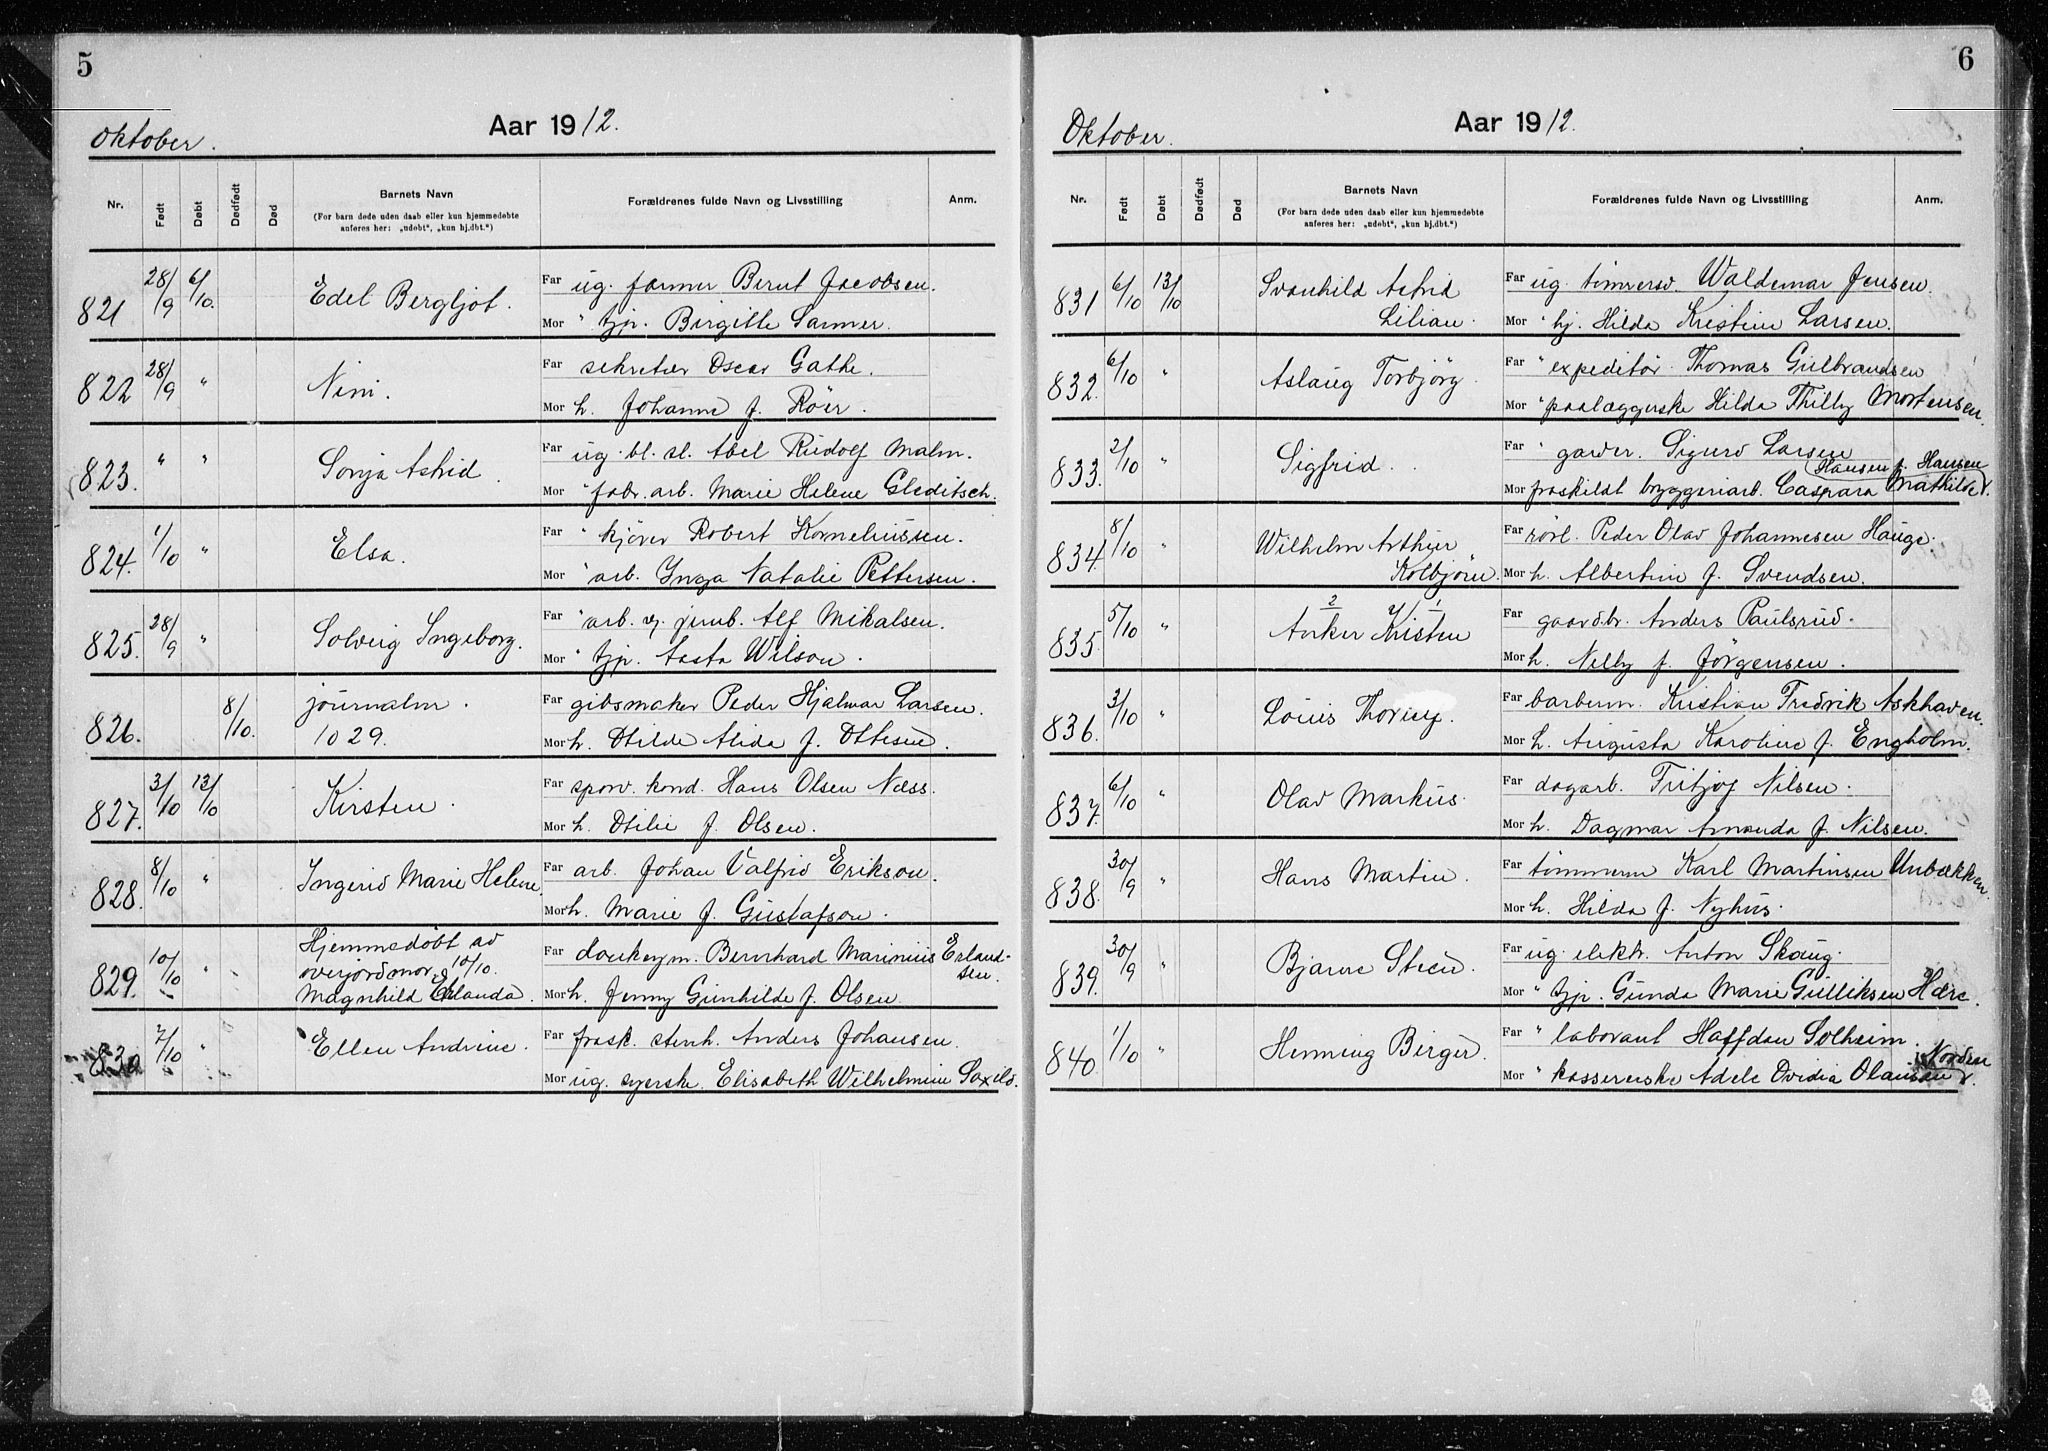 5
Oktober.
Aar 1912.
Nr. Født Døbt Dødfødt Død Barnets Navn Forældrenes fulde Navn og Livsstilling Anm.
(For barn døde uden daab eller kun hjemmedøbte
anføres her: „udøbt", „kun hj.dbt.")
821 28/9 6/10. Edel Bergljot. Far ug. former Bernt Jacobsen.
Mor " tjp. Birgitte Sarmer.
822 28/9 " Nini. Far sekretær Oscar Gathe.
Mor h. Johanne f. Röer.
823. " " Sonja Astrid. Far ug. bl. sl. Abel Rudolf Malm.
Mor " fabr. arb. Marie Helene Gleditsch.
824. 1/10 " Elsa. Far " kjörer Robert Korneliussen.
Mor " arb. Inga Natalie Pettersen.
825. 28/9 " Solveig Ingeborg. Far " arb. v. jernb. Alf Mikalsen.
Mor " tjp. Aasta Wilson.
826. 8/10. journalnr. Far gibsmaker Peder Hjalmar Larsen.
1029. Mor h. Otilde Alida f. Ottesen.
827. 3/10 13/10 Kirsten. Far sporv. kond. Hans Olsen Næss.
Mor h. Otilie f. Olsen.
828. 8/10 " Ingerid Marie Helene. Far arb. Johan Valfrid Erikson.
Mor h. Marie f. Gustafson.
829. 10/10 " Hjemmedöbt av
overjordmor 10/10.
Magnhild Erlanda. Far donkeym. Bernhard Marinius Erland-
sen.
Mor h. Jenny Gunhilde f. Olsen
830 7/10 " Ellen Andrine. Far frask. stenh. Anders Johansen.
Mor ug. syerske Elisabeth Wilhelmine Saxild.
6
Oktober.
Aar 1912.
Nr. Født Døbt Dødfødt Død Barnets Navn Forældrenes fulde Navn og Livsstilling Anm.
(For barn døde uden daab eller kun hjemmedøbte
anføres her: „udøbt", „kun hj.dbt.")
831 6/10 13/10 Svanhild Astrid Far ug. tömmersv. Waldemar Jensen.
Lilian. Mor " hj. Hilda Kristine Larsen.
832. 6/10 " Aslaug Torbjörg. Far " expeditör Thomas Gulbrandsen
Mor " paalæggerske Hilda Thilly Mortensen.
833. 2/10 " Sigfrid. Far " garver. Sigurd Larsen
Hansen f. Hansen
Mor fraskildt bryggeriarb. Caspara Mathilde
834. 8/10 " Wilhelm Arthur Far rörl. Peder Olav Johannesen Hauge.
Kolbjörn. Mor h. Albertine f. Svendsen.
835. 5/10 " 2 1
Anker Kristen Far gaardbr. Anders Paulsrud.
Mor h. Nelly f. Jörgensen.
836. 3/10 " Louis Far barberm. Kristian Fredrik Askhaven.
Mor h. Augusta Karoline f. Engholm.
837. 6/10 " Olav Markus. Far dagarb. Fritjof Nilsen.
Mor h. Dagmar Amanda f. Nilsen.
838. 30/9 " Hans Martin. Far tömmerm Karl Martinsen Unbækken.
Mor h. Hilda f. Nyhus.
839. 30/9 " Bjarne Steen. Far ug. elektr. Anton Skaug.
Mor " tjp. Gunda Marie Gulliksen Hære.
840. 1/10 " Henning Birger. Far " laborant Haffdan Solheim.
Norden
Mor " kassererske Adele Ovidia Olaussen